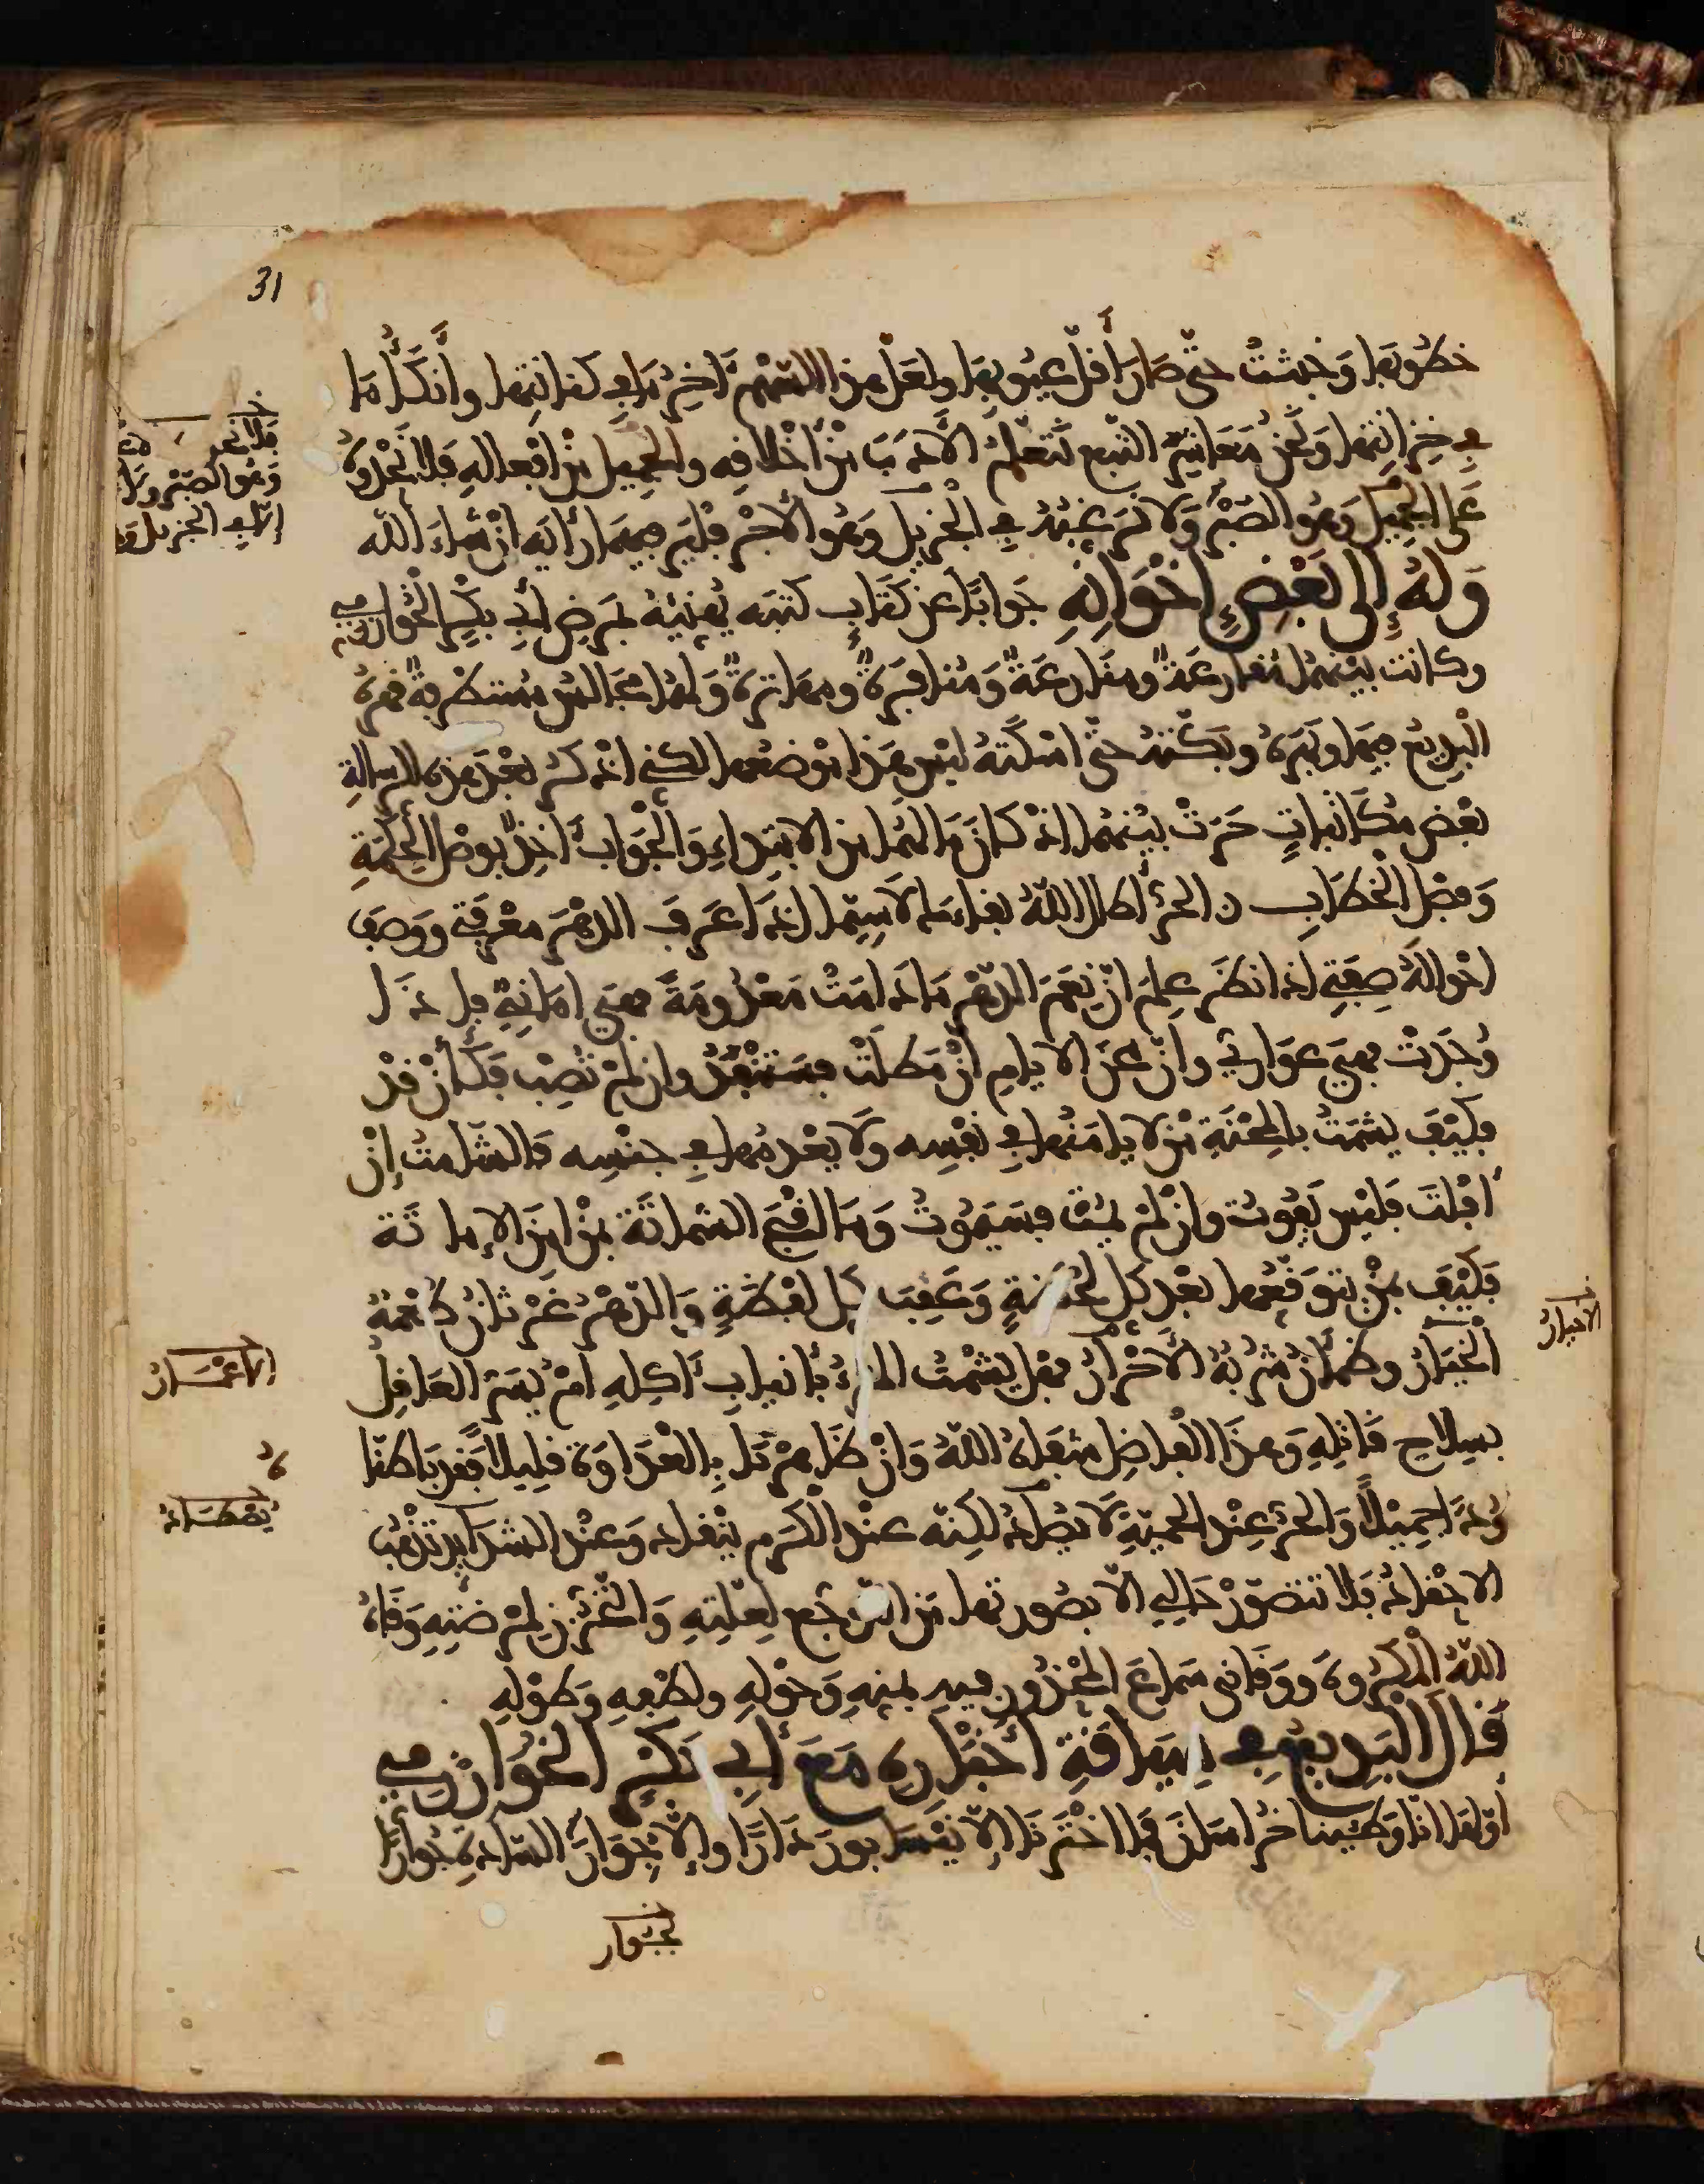 31
خطوبها وخبثت حتى صار أقل عيوبها ولعل هذا السهم آخر ما في كنانتها وانكأ ما
في خزانتها ونحن معاشر التبع نتعلم الأدب من أخلاقه والجميل من أفعاله فلا نحدوه
على الجميل وهو الصبر ولا نرغبه في الجزيل وهو الأجر فلير فيهما رأيه ان شاء الله
وله إلى بعض إخوانه جوابا عن كتاب كتبه يهنيه بمرض أبي بكر الخوارزمي
وكانت بينهما مقارعة ومنازعة ومنافرة ومهاترة ولهما مجالس مستظرفة قهره
البديع فيها وبهره وبكته حتى اسكته ليس هذا موضعها لكني اذكر بعد هذه الرسالة
بعض مكاتبات جرت بينهما اذ كان ما لهما من الابتداء والجواب آخذ بوصل الحكمة
وفصل الخطاب ن الحر أطال الله بقاءه لا سيما إذا عرف الدهر معرفتي ووصف
احواله صفتي اذا نظر علم ان نعم الدهر ما دامت معدومة فهي اماني فإذا
وجدت فهي عواري وان محن الايام إن مطلت فستنفد وإن لم تصب فكأن قد
فكيف يشمت بالمحنة من لا يامنها في نفسه ولا يعدمها في جنسه فالشامت إن
افلت فليس يفوت وإن لم يمت فسيموت وما اقبح الشماتة بمن امن الإماتة
فكيف بمن يتوقعها بعد كل لحظة وعقب كل لفظة والدهر غرثان طعمه
الخيار وظمآن شربه الأحرار فهل يشمت المرء بأنياب آكله أم يسر العاقل
بسلاح قاتله وهذا الفاضل شفاه الله وان ظاهرناه بالعداوة قليلا فقد باطناه
ودا جميلا والحر عند الحمية لا يصاد لكنه عند الكرم ينقاد وعند الشدائد تذهب
الاحقاد فلا تتصور حالي الا بصورتها من التوجع لعلته والتحزن لمرضته وقاه
الله المكروه ووقاني سماع المحذور فيه بمنه وحوله ولطفه وطوله
قال البديع في سياقة أخباره مع أبي بكر الخوارزمي
أولها انا وطئنا خراسان فما اخترنا إلا نيسابور دارا وإلا جوار السادة جوارا
بجوار
وهو الصبر ولا
إلا في الجزيل
الاخيار
الأعمار
يصطاد